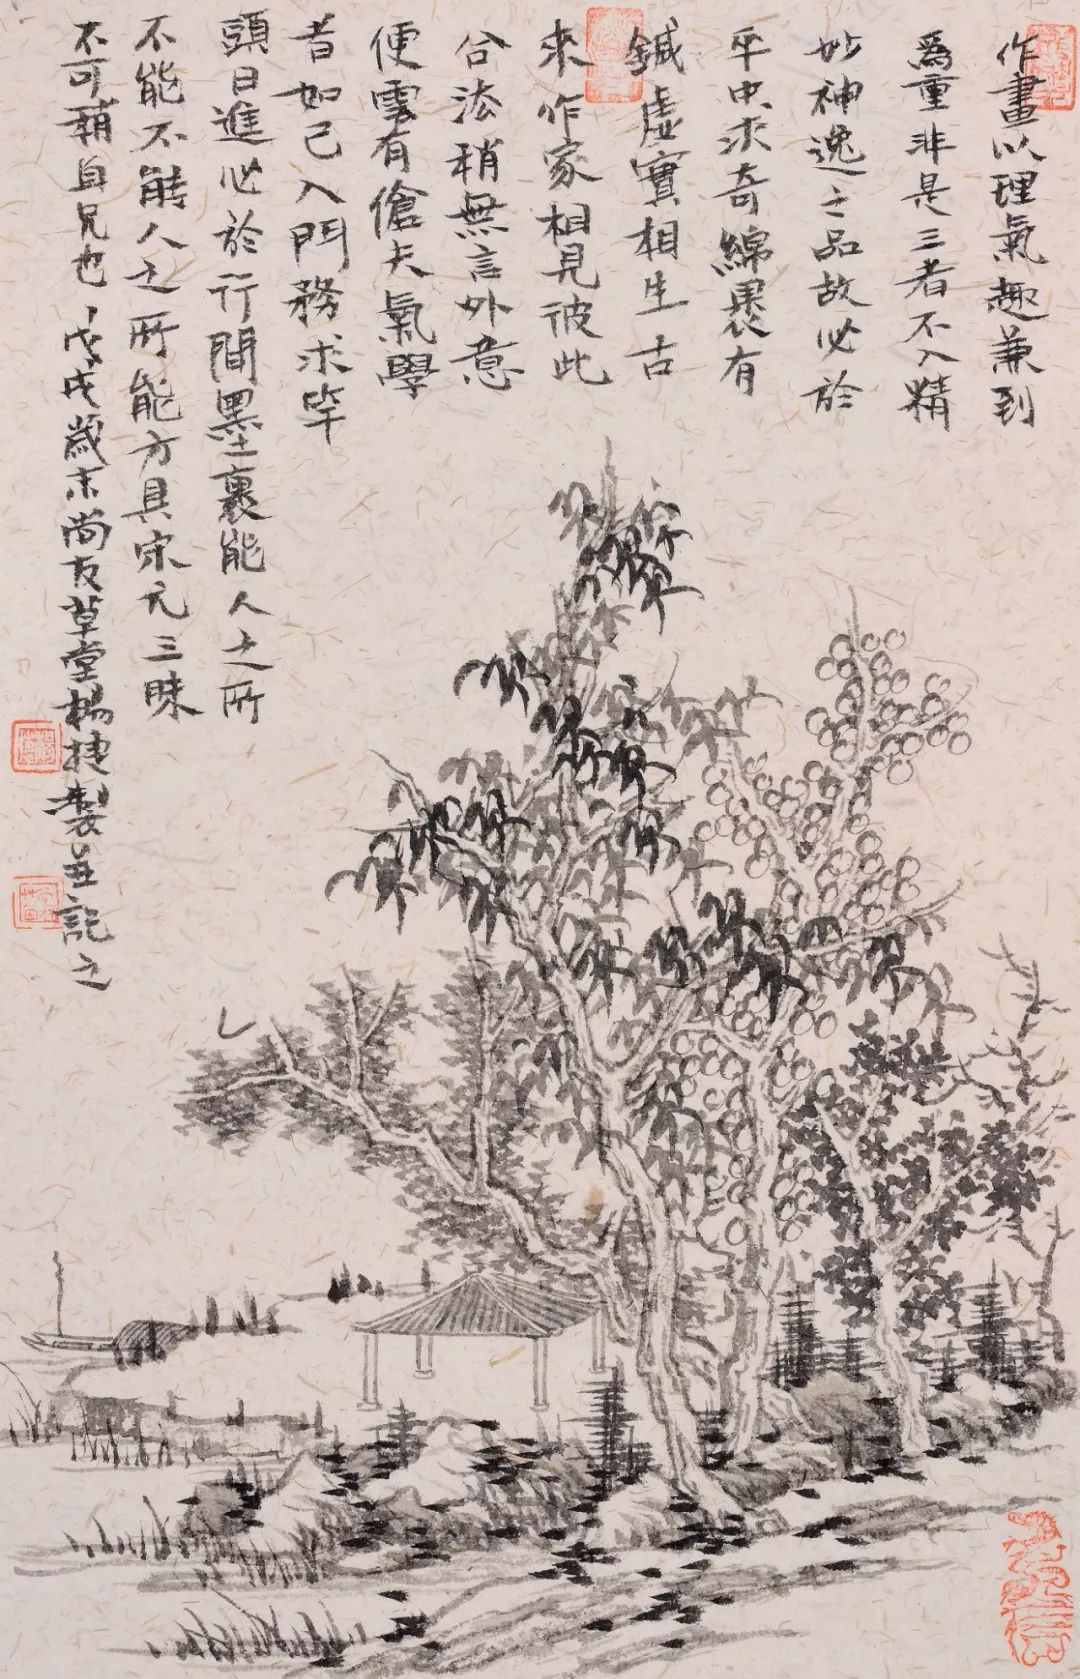 作畫以理氣趣兼到
爲重非是三者不入精
妙神逸之品故必於
平中求奇綿裹有
鍼虛實相生古
來作家相見彼此
合法稍無言外意
便雲有傖夫氣學
者如已入門務求竿
頭日進必於行間墨裏能人之所
不能不能人之所能方具宋元三昧
不可稍自足也戊戌歲末尚友草堂楊捷製並記之